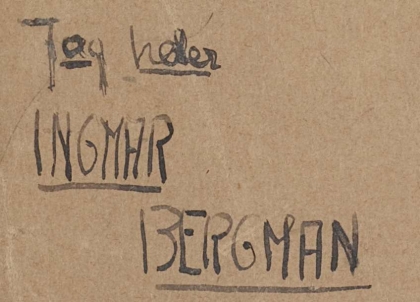 Jag heter
INGMAR
BERGMAN